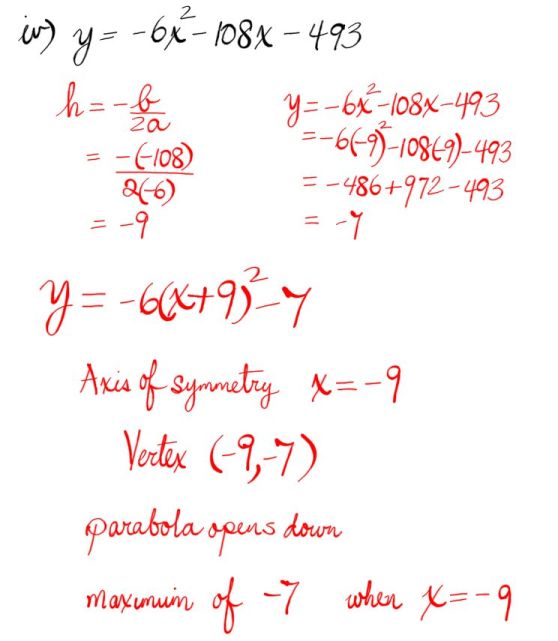 iv) y = -6x² - 108x - 493
h = -b/2a
= -(-108)/2(-6)
= -9
y = -6x² - 108x - 493
= -6(-9)² - 108(-9) - 493
= -486 + 972 - 493
= -7
y = -6(x+9)² - 7
Axis of symmetry x = -9
Vertex (-9, -7)
parabola opens down
maximum of -7 when x = -9